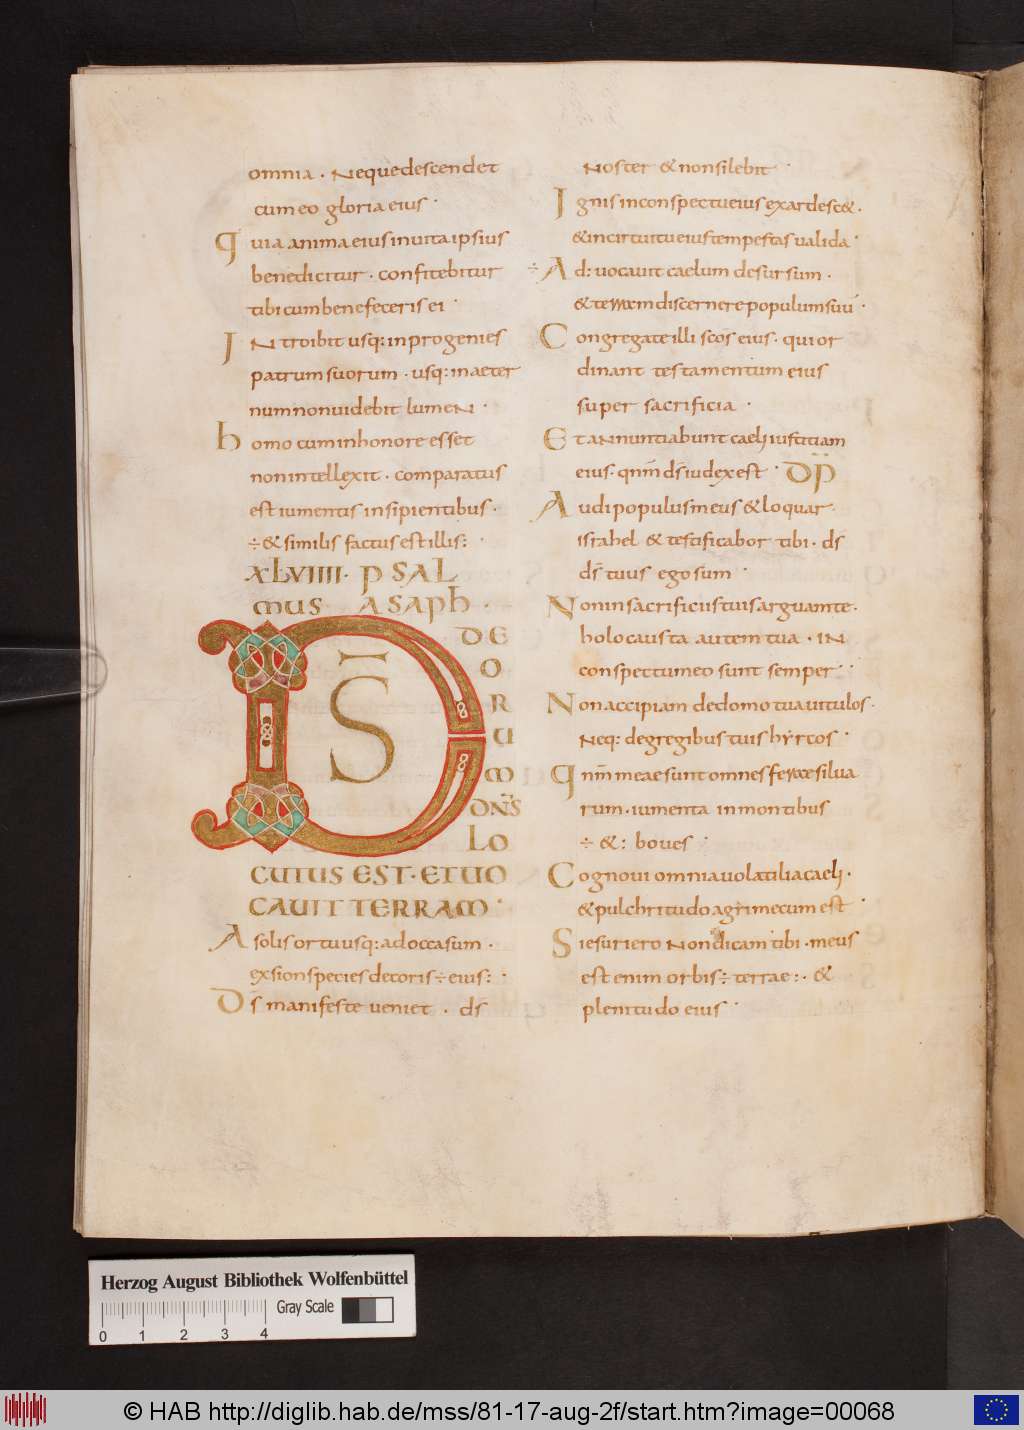 omnia · Neque descendet
cum eo gloria eius ·
Quia anima eius in uita ipsius
benedicitur · confitebitur
tibi cum benefeceris ei ·
INtroibit usq: in progenies
patrum suorum · usq: in aeter
num non uidebit lumeN ·
homo cum in honore esset
non intellexit · comparatus
est iumentis insipientibus ·
÷ & similis factus est illis: ·
XLVIIII · PSAL
MUS ASAPH ·
D̄S DE
O
R
U
M
DN̄S
LO
CUTUS EST · ET UO
CAUIT TERRAM ·
A solis ortu usq: ad occasum ·
ex sion species decoris ÷ eius: ·
D̄s manifeste ueniet · ds
Noster & non silebit ·
Ignis in conspectu eius exardesc& ·
& in circuitu eius tempestas ualida ·
÷ Ad: uocauit caelum desursum ·
& terram discernere populum suū ·
Congregate illi scōs eius · qui or
dinant testamentum eius
super sacrificia ·
Et adNuntiabunt caeli iustitiam
eius · qnm̄ ds̄ iudex est · DP̄
Audi populus meus & loquar
israhel & testificabor tibi · ds
ds̄ tuus ego sum ·
Non in sacrificiis tuis arguam te ·
holocausta autem tua · IN
conspectu meo sunt semper ·
Non accipiam de domo tua uitulos ·
Neq: de gregibus tuis hyrcos ·
Qnm̄ meae sunt omnes ferae silua
rum · iumenta in montibus
÷ &: boues ·
Cognoui omnia uolatilia caeli ·
& pulchritudo agri mecum est ·
Si esuriero Non dicam tibi · meus
est enim orbis ÷ terrae: · &
plenitudo eius ·
Herzog August Bibliothek Wolfenbüttel
Gray Scale
0 1 2 3 4
© HAB http://diglib.hab.de/mss/81-17-aug-2f/start.htm?image=00068